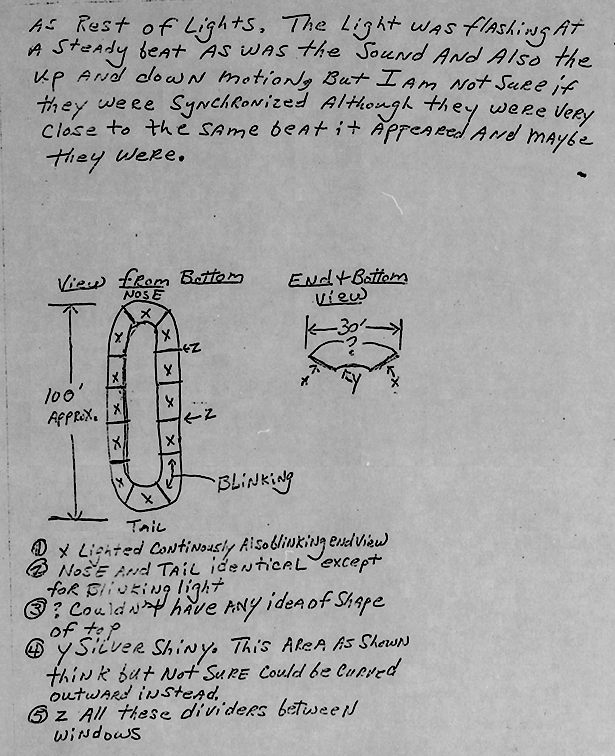 AS REST OF LIGHTS. THE LIGHT WAS FLASHING AT
A STEADY BEAT AS WAS THE SOUND AND ALSO THE
UP AND DOWN MOTION, BUT I AM NOT SURE IF
THEY WERE SYNCHRONIZED ALTHOUGH THEY WERE VERY
CLOSE TO THE SAME BEAT IT APPEARED AND MAYBE
THEY WERE.
VIEW FROM BOTTOM
NOSE
X
X X
Z
X X
X X
Z
X X
X
BLINKING
TAIL
100'
APPROX.
END + BOTTOM
VIEW
30'
?
X Y X
① X LIGHTED CONTINOUSLY ALSO BLINKING END VIEW
② NOSE AND TAIL IDENTICAL EXCEPT
FOR BLINKING LIGHT
③ ? COULDN'T HAVE ANY IDEA OF SHAPE
OF TOP
④ Y SILVER SHINY. THIS AREA AS SHOWN
THINK BUT NOT SURE COULD BE CURVED
OUTWARD INSTEAD.
⑤ Z ALL THESE DIVIDERS BETWEEN
WINDOWS